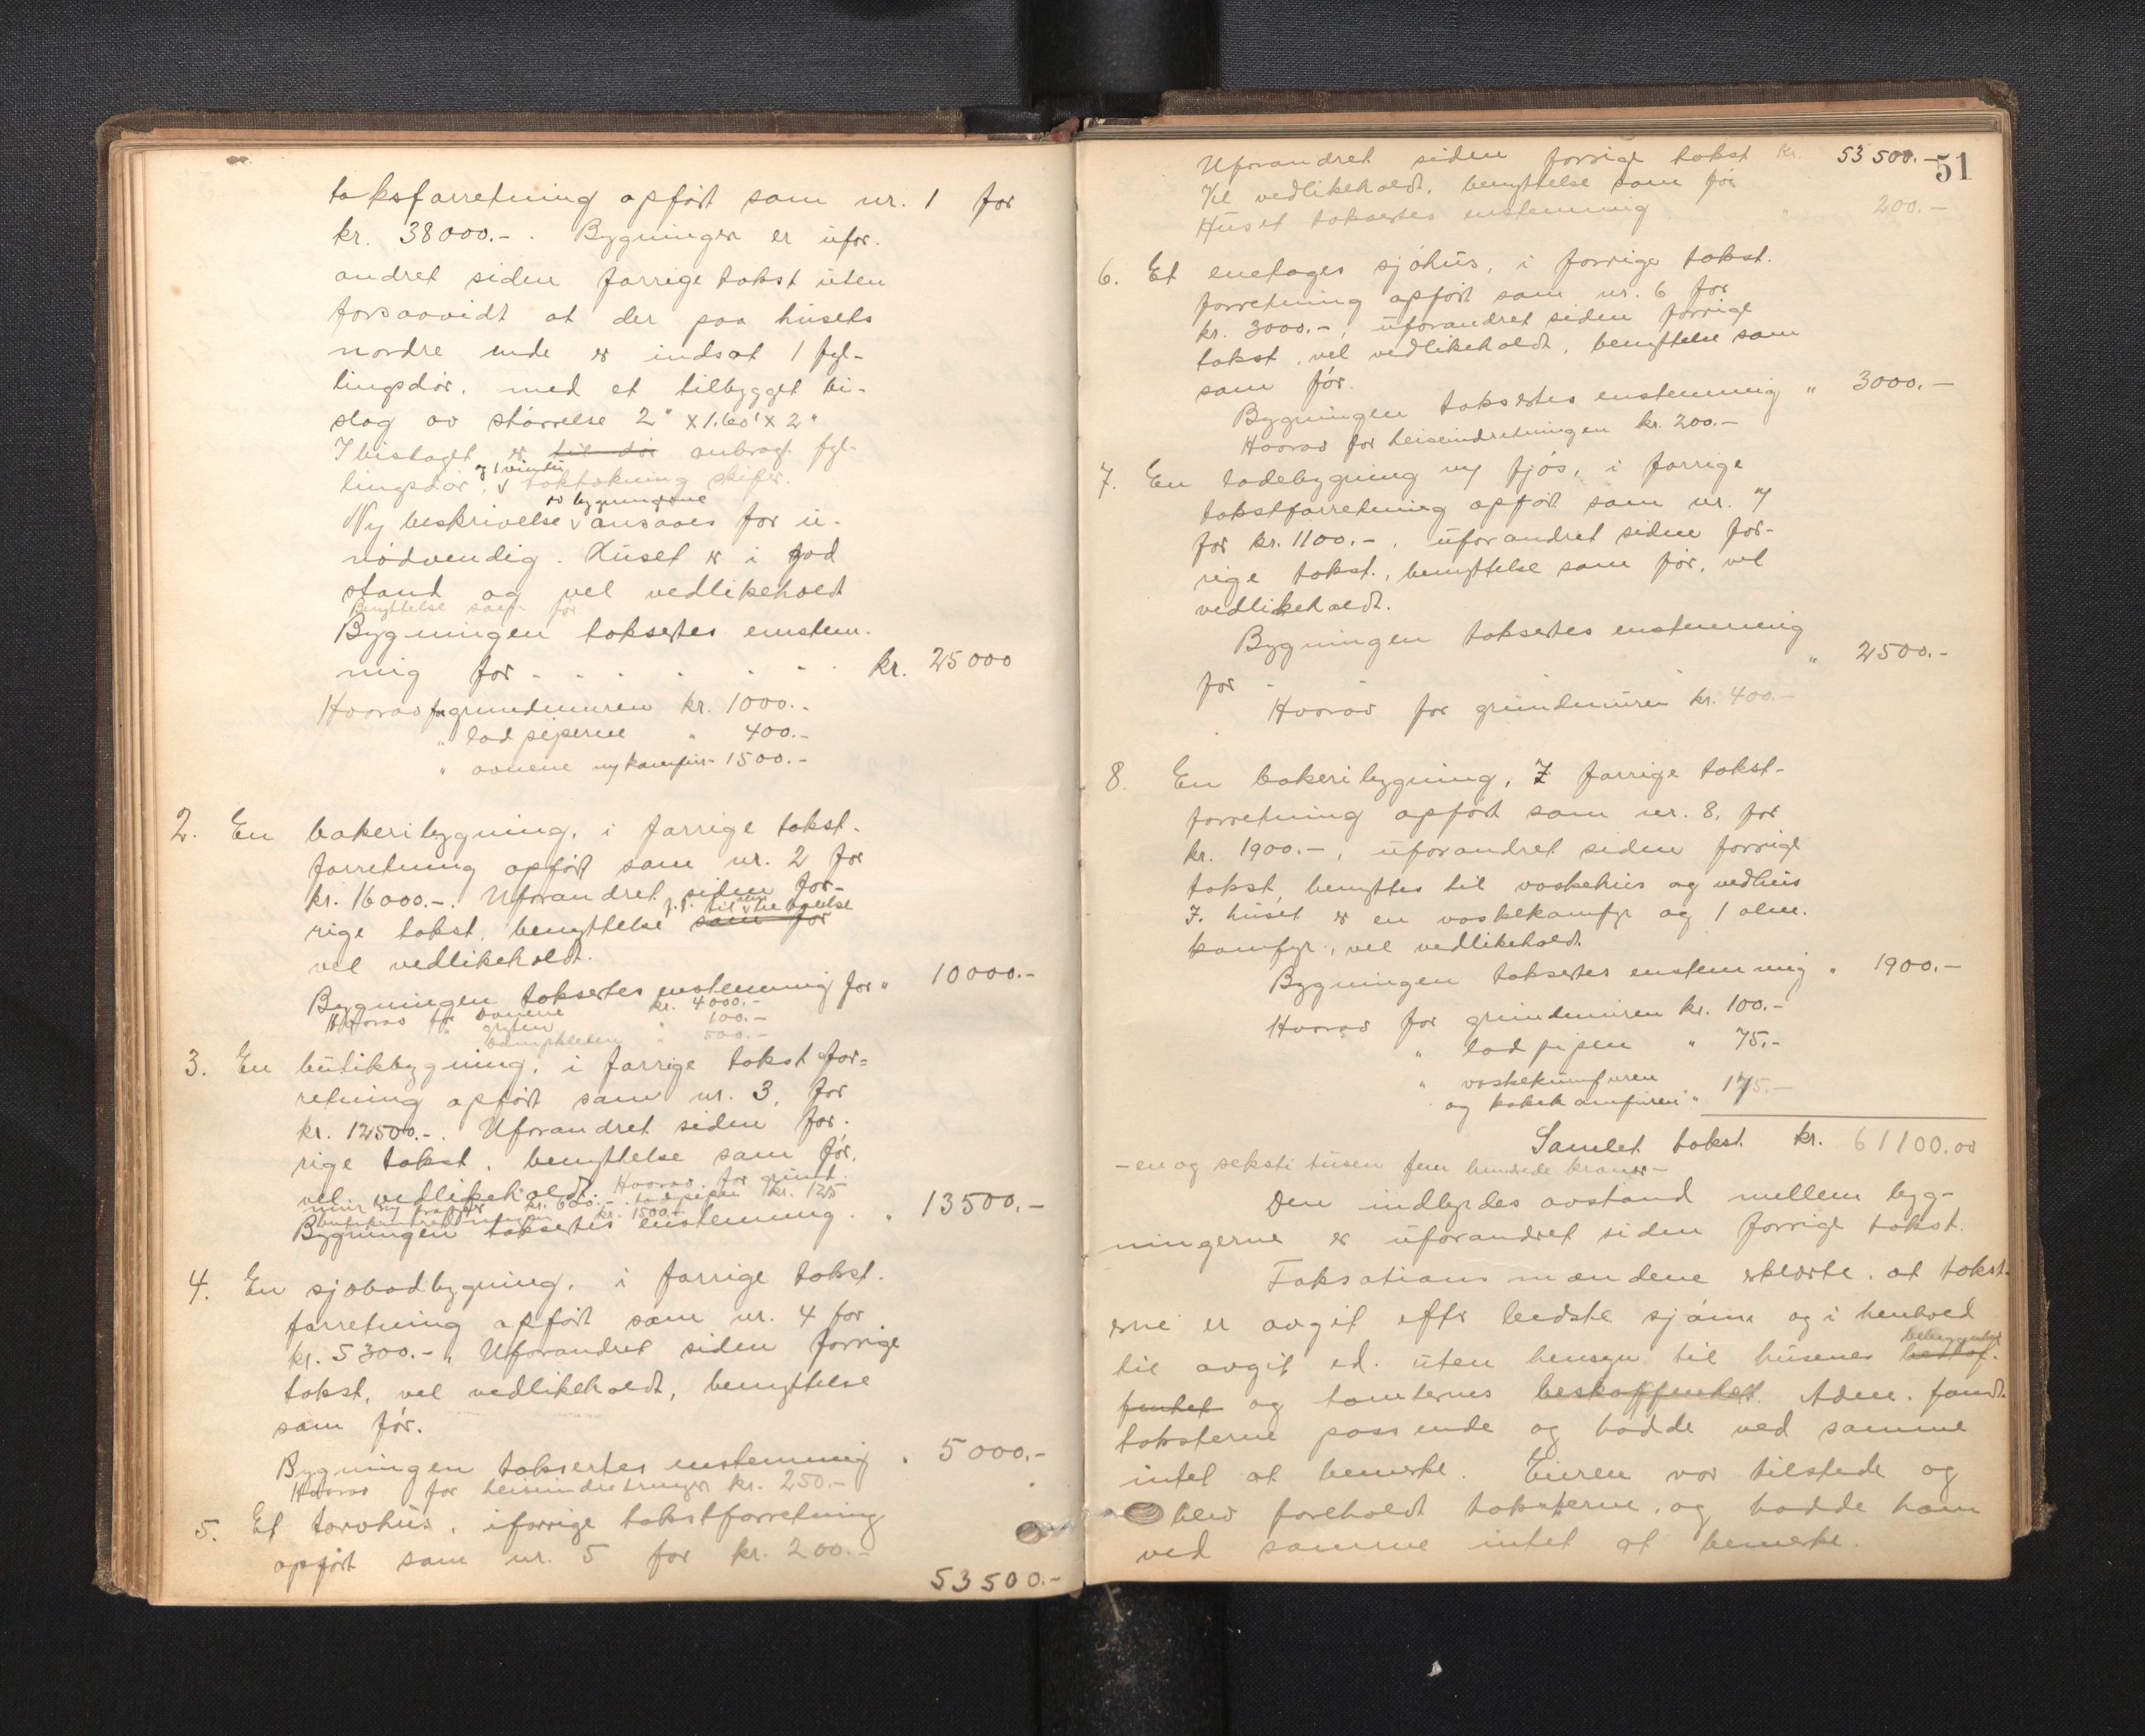 takstforretning opført som nr. 1 for
kr. 38000.- . Bygningen er ufor-
andret siden forrige takst uten
forsaavidt at der paa husets
nordre ende er indsat 1 fyl-
lingsdør, med et tilbygget bi-
slag av størrelse 2" x 1.60' x 2"
I bislaget er til dør anbragt fyl-
og 1 vindu
lingsdør, v taktækning skifer.
av bygningerne
Ny beskrivelse v ansaaes for u-
nødvendig. Huset er i god
stand og vel vedlikeholdt
Benyttelse som før
Bygningen taksertes enstem-
mig for - . . . - - . kr. 25000
Hvorav for grundmuren kr. 1000.-
" lodpiperne " 400.-
" ovnene og komfur - 1500.-
2. En bakeribygning, i forrige takst-
forretning opført som nr. 2 for
kr. 16000.-. Uforandret siden for-
rige takst, benyttelse som før
vel vedlikeholdt.
Bygningen taksertes enstemmig for " 10000.-
Hvorav for ovnene kr. 4000.-
" gryten " 100.-
" 500.-
3. En butikbygning, i forrige takstfor-
retning opført som nr. 3, for
kr. 12500.-. Uforandret siden for-
rige takst, benyttelse som før,
vel vedlikeholdt. Hvorav for grund-
mur og trapper kr. 600.- lodpipen kr. 125
kr. 1500.-
Bygningen taksertes enstemmig . " 13500.-
4. En sjøbodbygning, i forrige takst-
forretning opført som nr. 4 for
kr. 5300.-, Uforandret siden forrige
takst, vel vedlikeholdt, benyttelse
som før.
Bygningen taksertes enstemmig " 5000.-
Hvorav for heiseindretningen kr. 250.-
5. Et torvhus, i forrige takstforretning
opført som nr. 5 for kr. 200.-
53500.-
51
Uforandret siden forrige takst kr. 53500.-
Vel vedlikeholdt, benyttelse som før
Huset taksertes enstemmig " 200.-
6. Et enetages sjøhus, i forrige takst-
forretning opført som nr. 6 for
kr. 3000.-, uforandret siden forrige
takst, vel vedlikeholdt, benyttelse som
som før.
Bygningen taksertes enstemmig " 3000.-
Hvorav for heiseindretningen kr. 200.-
7. En ladebygning og fjøs, i forrige
takstforretning opført som nr. 7
for kr. 1100.-, uforandret siden for-
rige takst, benyttelse som før, vel
vedlikeholdt.
Bygningen taksertes enstemmig
for - " 2500.-
Hvorav for grundmuren kr. 400.-
8. En bakeribygning, I forrige takst-
forretning opført som nr. 8, for
kr. 1900.-, uforandret siden forrige
takst, benyttes til vaskehus og vedhus
I huset er en vaskekomfyr og 1 alm.
komfyr, vel vedlikeholdt.
Bygningen taksertes enstemmig " 1900.-
Hvorav for grundmuren kr. 100.-
" lodpipen " 75.-
" vaskekomfuren
og kokekomfuren " 175.-
Samlet takst kr. 61100.00
- en og seksti tusen fem hundrede kroner -
Den indbyrdes avstand mellem byg-
ningerne er uforandret siden forrige takst.
Taksationsmændene erklærte, at takst-
erne er avgit efter bedste skjøn og i henhold
til avgit ed. uten hensyn til husenes beskaf-
beliggenhet
fenhet og tomternes beskaffenhet. Adm. fandt
taksterne passende og hadde ved samme
intet at bemerke. Eieren var tilstede og
blev foreholdt taksterne, og hadde han
ved samme intet at bemerke.